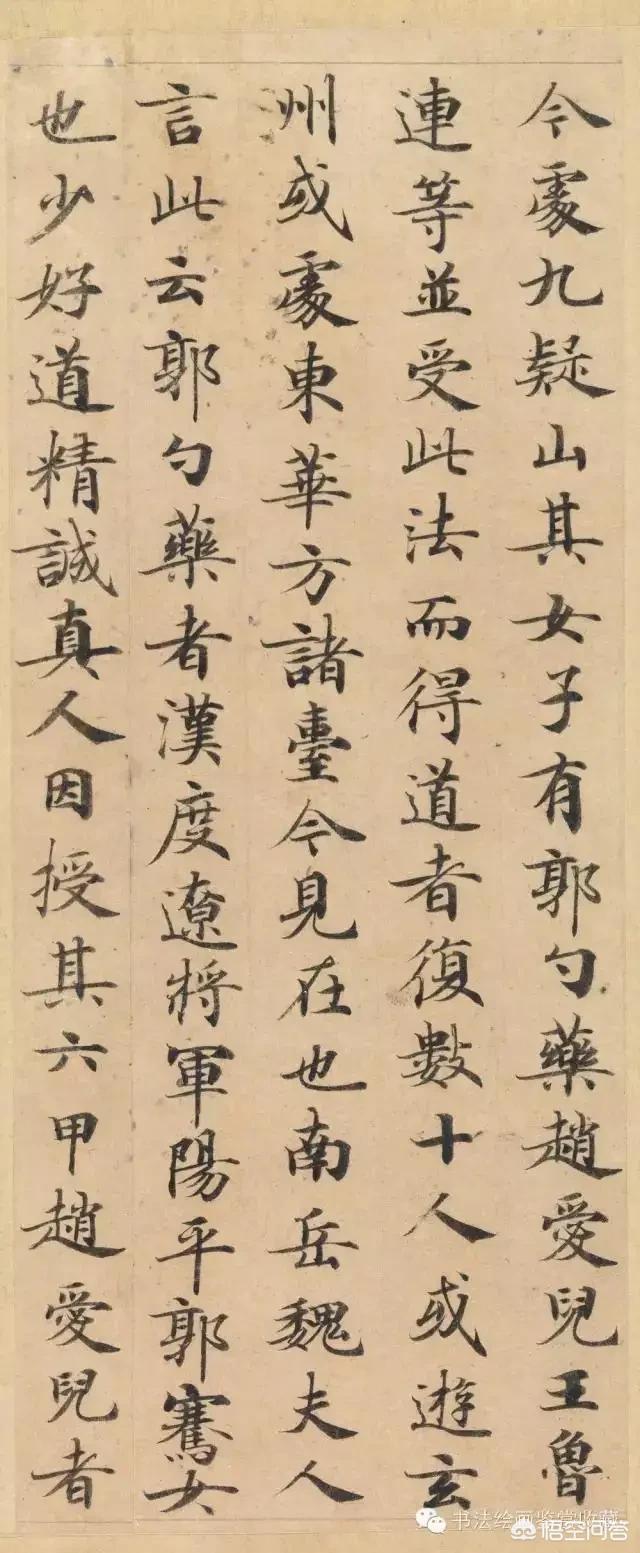 今處九疑山其女子有郭勺藥趙愛兒王魯
連等並受此法而得道者復數十人或遊玄
洲或處東華方諸臺今見在也南岳魏夫人
言此云郭勺藥者漢度遼將軍陽平郭騫女
也少好道精誠真人因授其六甲趙愛兒者
书法绘画鉴赏收藏
悟空问答